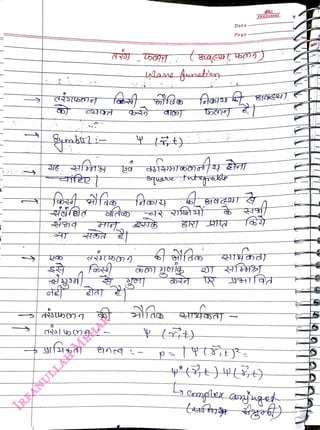 Date
Page
तरंग फलन : ( अवस्था फलन )
Wave function
→ तरंगफलन किसी भौतिक निकाय की अवस्था
को व्यक्त करने वाला फलन है।
→ Symbol :- Ψ (r⃗, t)
→ यह सम्मिश्र एवं वर्गसमाकलनीय होना
चाहिए। Square Integrable
→ किसी भौतिक निकाय की अवस्था से
संबंधित गतिक चर राशियों के सभी
संभव मान इसके द्वारा प्राप्त किये
जा सकते है।
→ एक तरंगफलन की भौतिक सार्थकता
इसे किसी कला गुणांक या सम्मिश्र
संयुग्मी से गुणा करने पर प्रभावित
नहीं होता है।
→ तरंगफलन की भौतिक सार्थकता -
→ तरंगफलन :- Ψ (r⃗, t)
→ प्रायिकता घनत्व :- P = | Ψ (r⃗, t)|² =
Ψ* (r⃗, t) Ψ (r⃗, t)
↳ complex conjugate
(सम्मिश्र संयुग्मी)
IRFANULLAH MEHAR